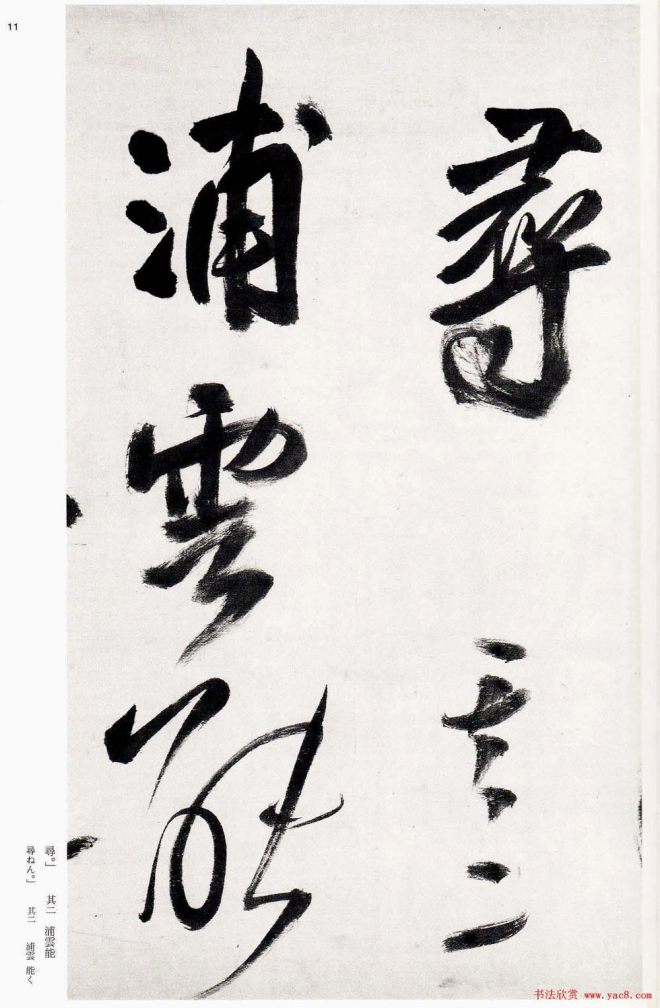 11
尋
其二
浦雲能
尋。」 其二 浦雲能
尋ねん。」 其二 浦雲 能く
书法欣赏 www.yac8.com